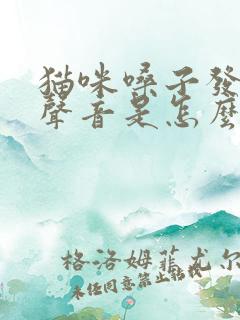 猫咪嗓子發
聲音是怎麼
格洛姆菲尤尔
未经同意禁止転我